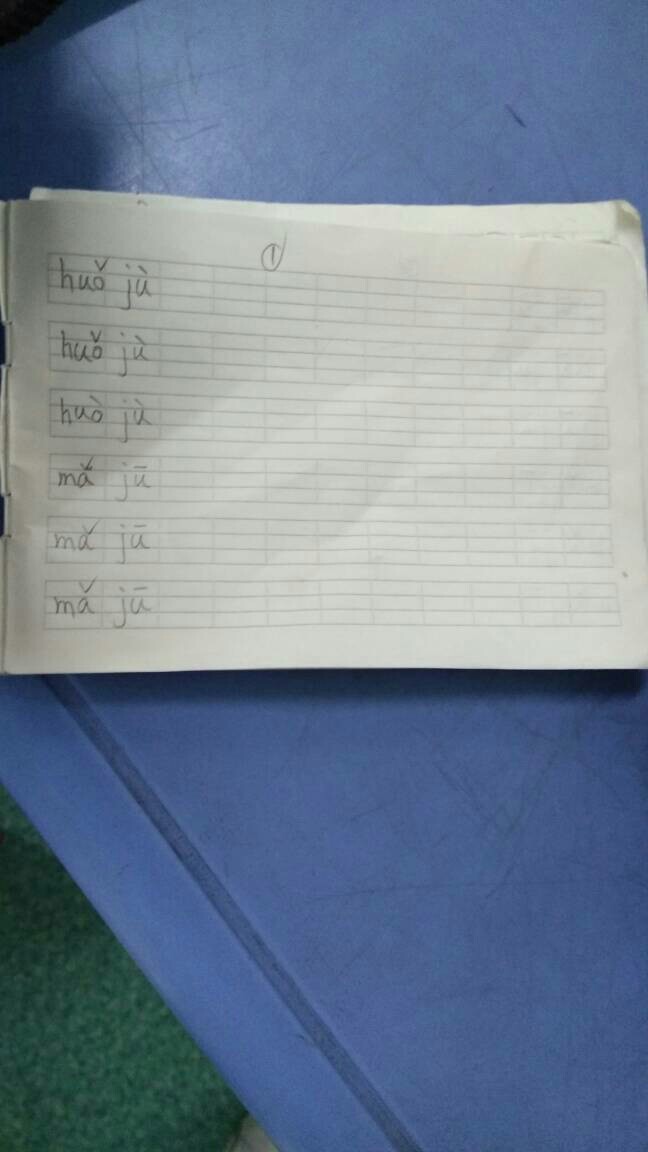 ①
huǒ jù
huǒ jù
huò jù
mǎ jū
mǎ jū
mǎ jū